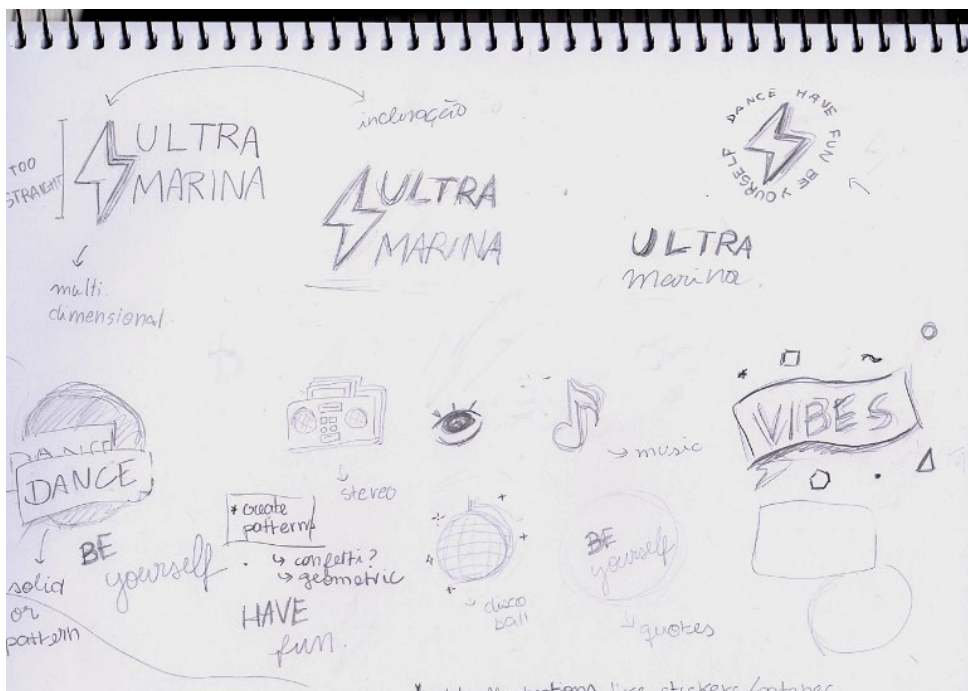 TOO
STRAIGHT
ULTRA
MARINA
multi
dimensional
inclinação
ULTRA
MARINA
DANCE HAVE FUN BE YOURSELF
ULTRA
marina
DANCE
DANCE
solid
or
pattern
BE
yourself
stereo
* create
pattern
confetti?
geometric
HAVE
fun.
music
disco
ball
BE
yourself
quotes
VIBES
like stickers/patches